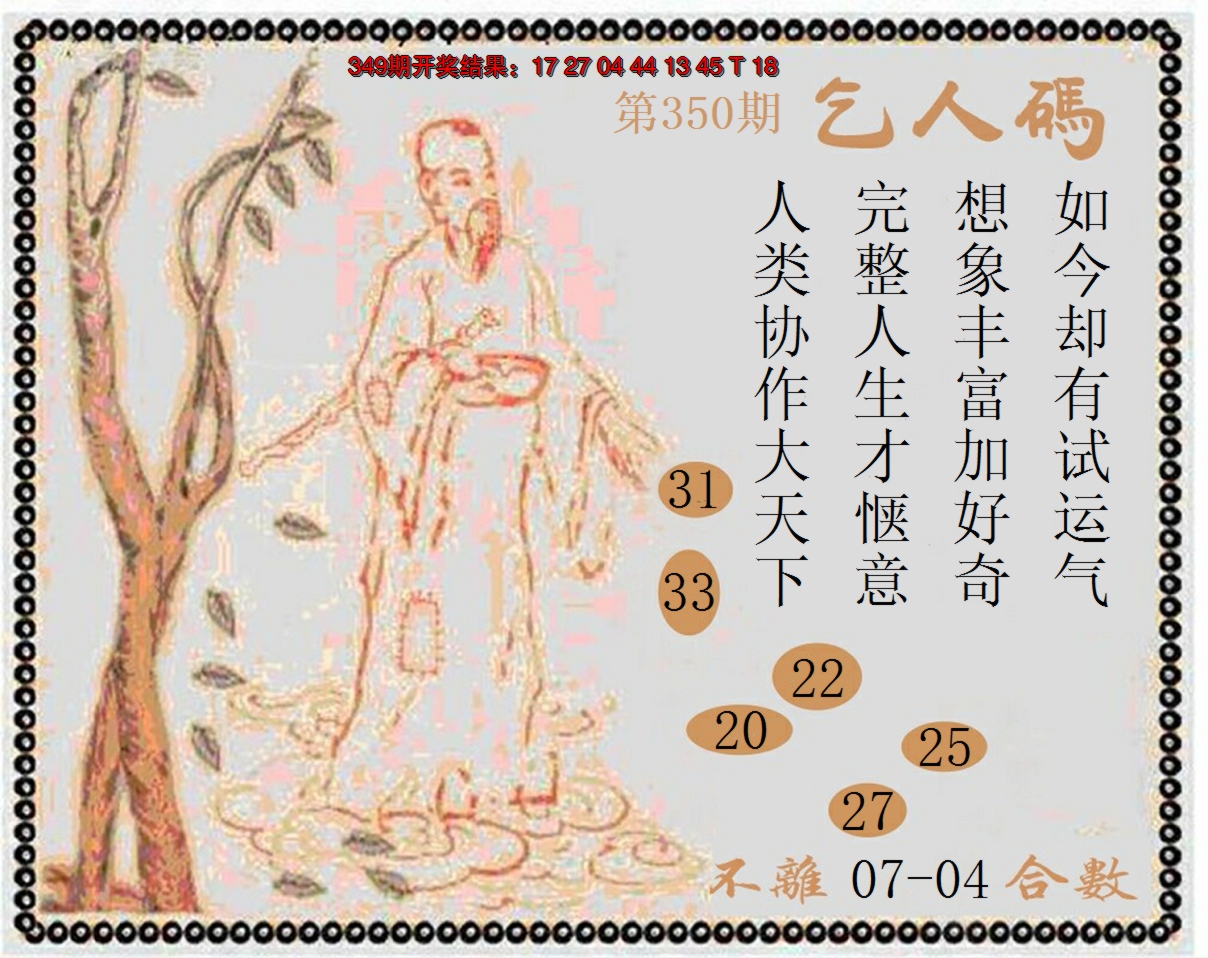 349期开奖结果：17 27 04 44 13 45 T 18
第350期
乞人碼
如今却有试运气
想象丰富加好奇
完整人生才惬意
人类协作大天下
31
33
22
20
25
27
不離 07-04 合數